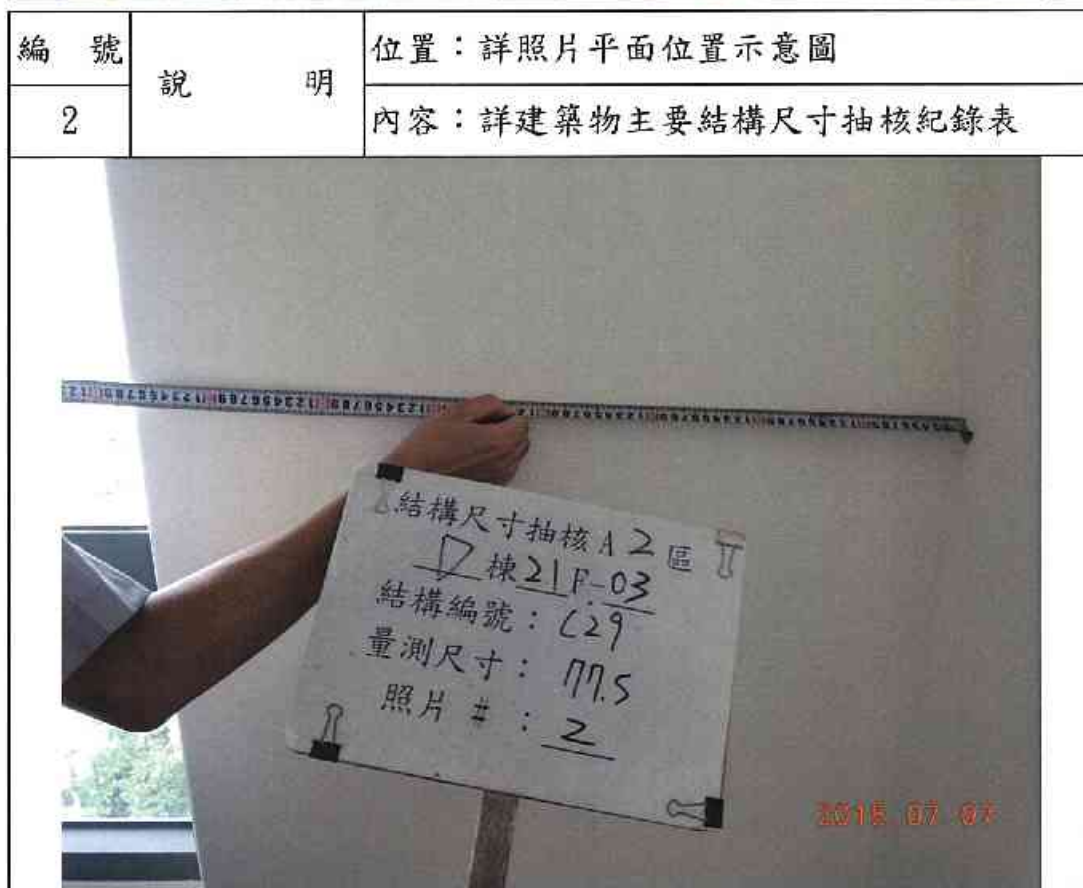 編 號
說 明
位置：詳照片平面位置示意圖
2
內容：詳建築物主要結構尺寸抽核紀錄表
結構尺寸抽核A2區
D棟21F-03
結構編號：C29
量測尺寸：77.5
照片#：2